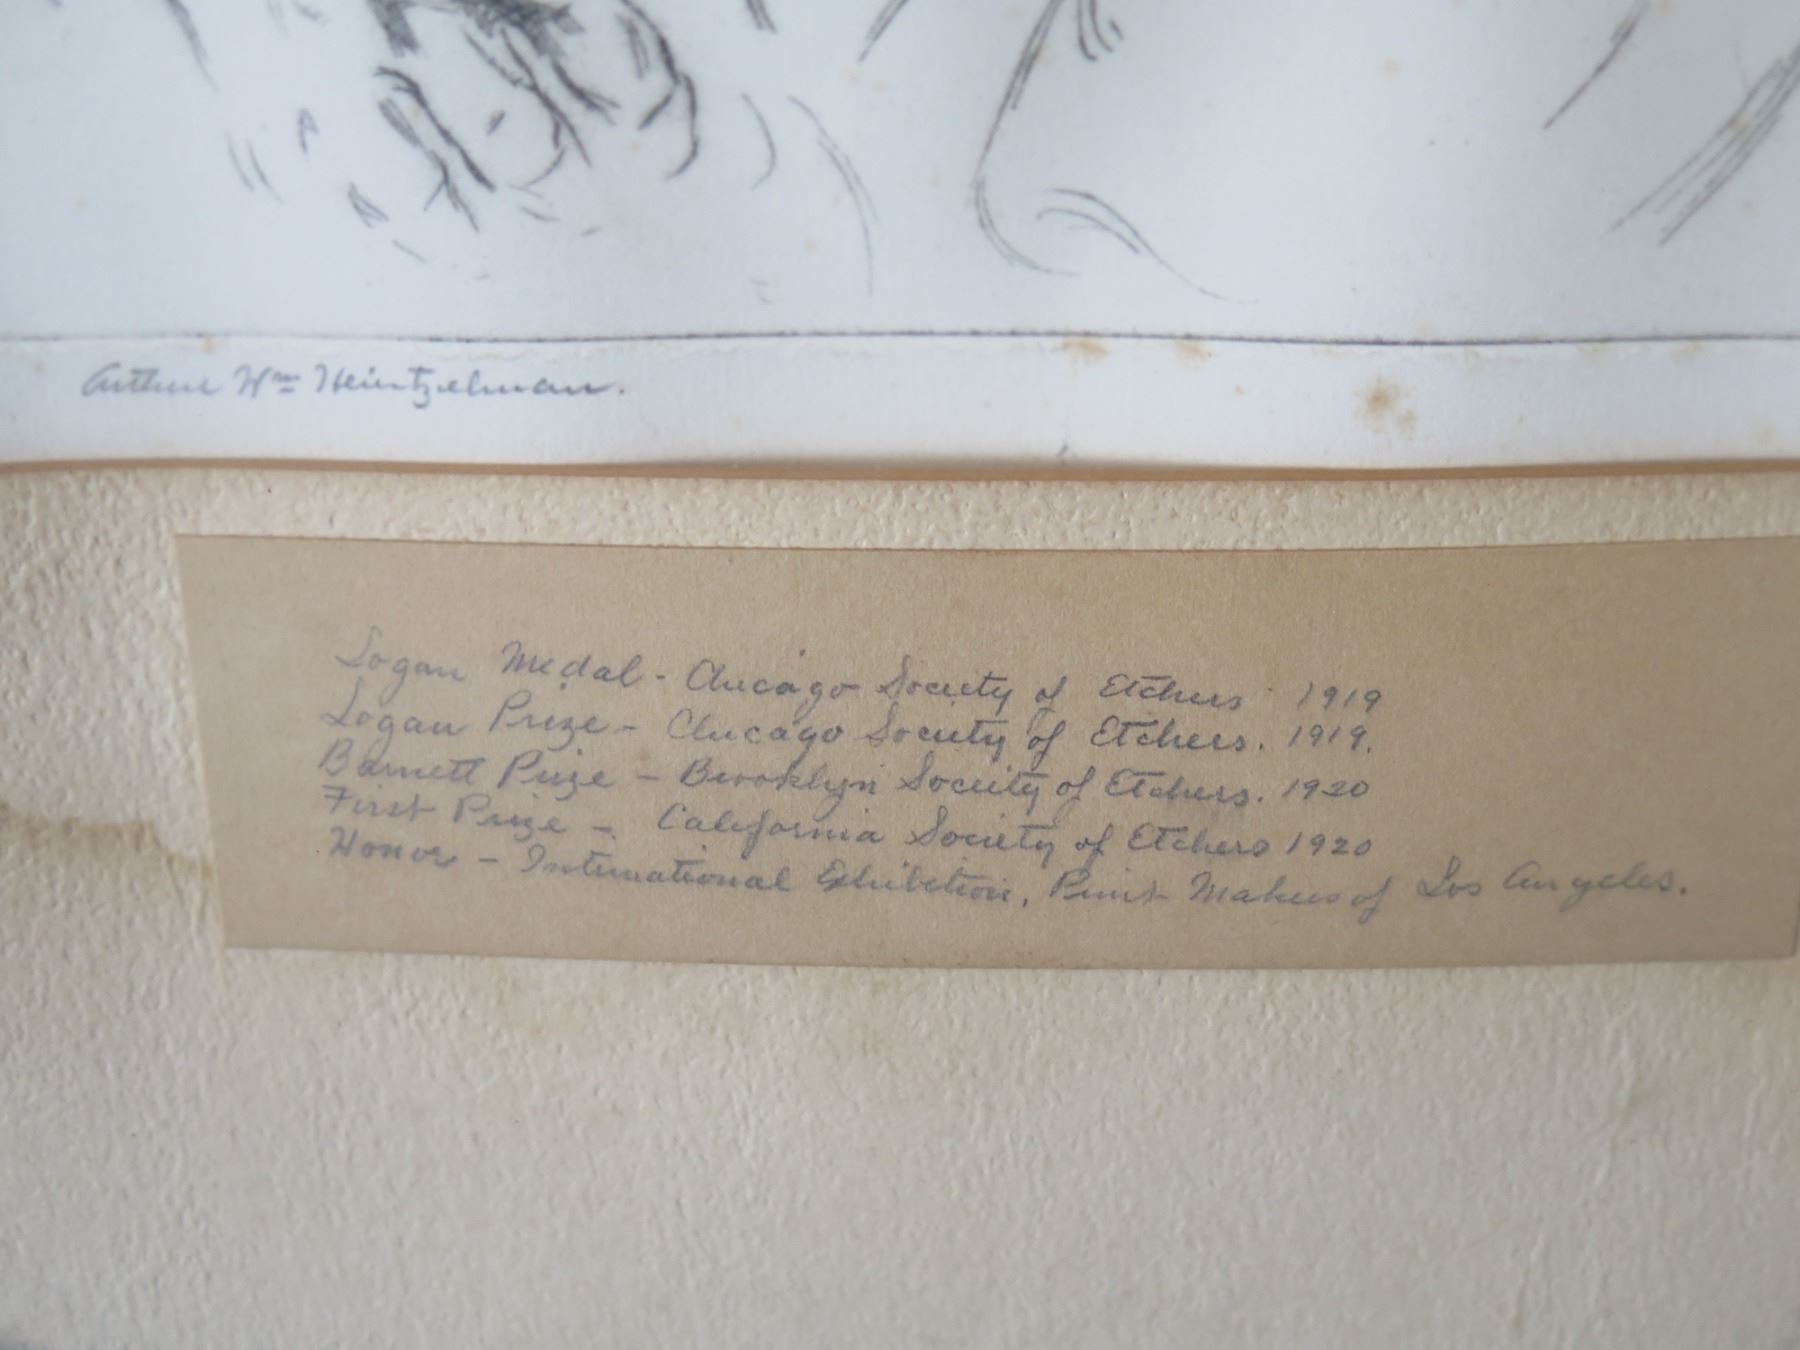 Arthur Wm Heintzelman.
Logan Medal - Chicago Society of Etchers 1919
Logan Prize - Chicago Society of Etchers. 1919.
Barnett Prize - Brooklyn Society of Etchers. 1920
First Prize - California Society of Etchers 1920
Honor - International Exhibition, Print Makers of Los Angeles.